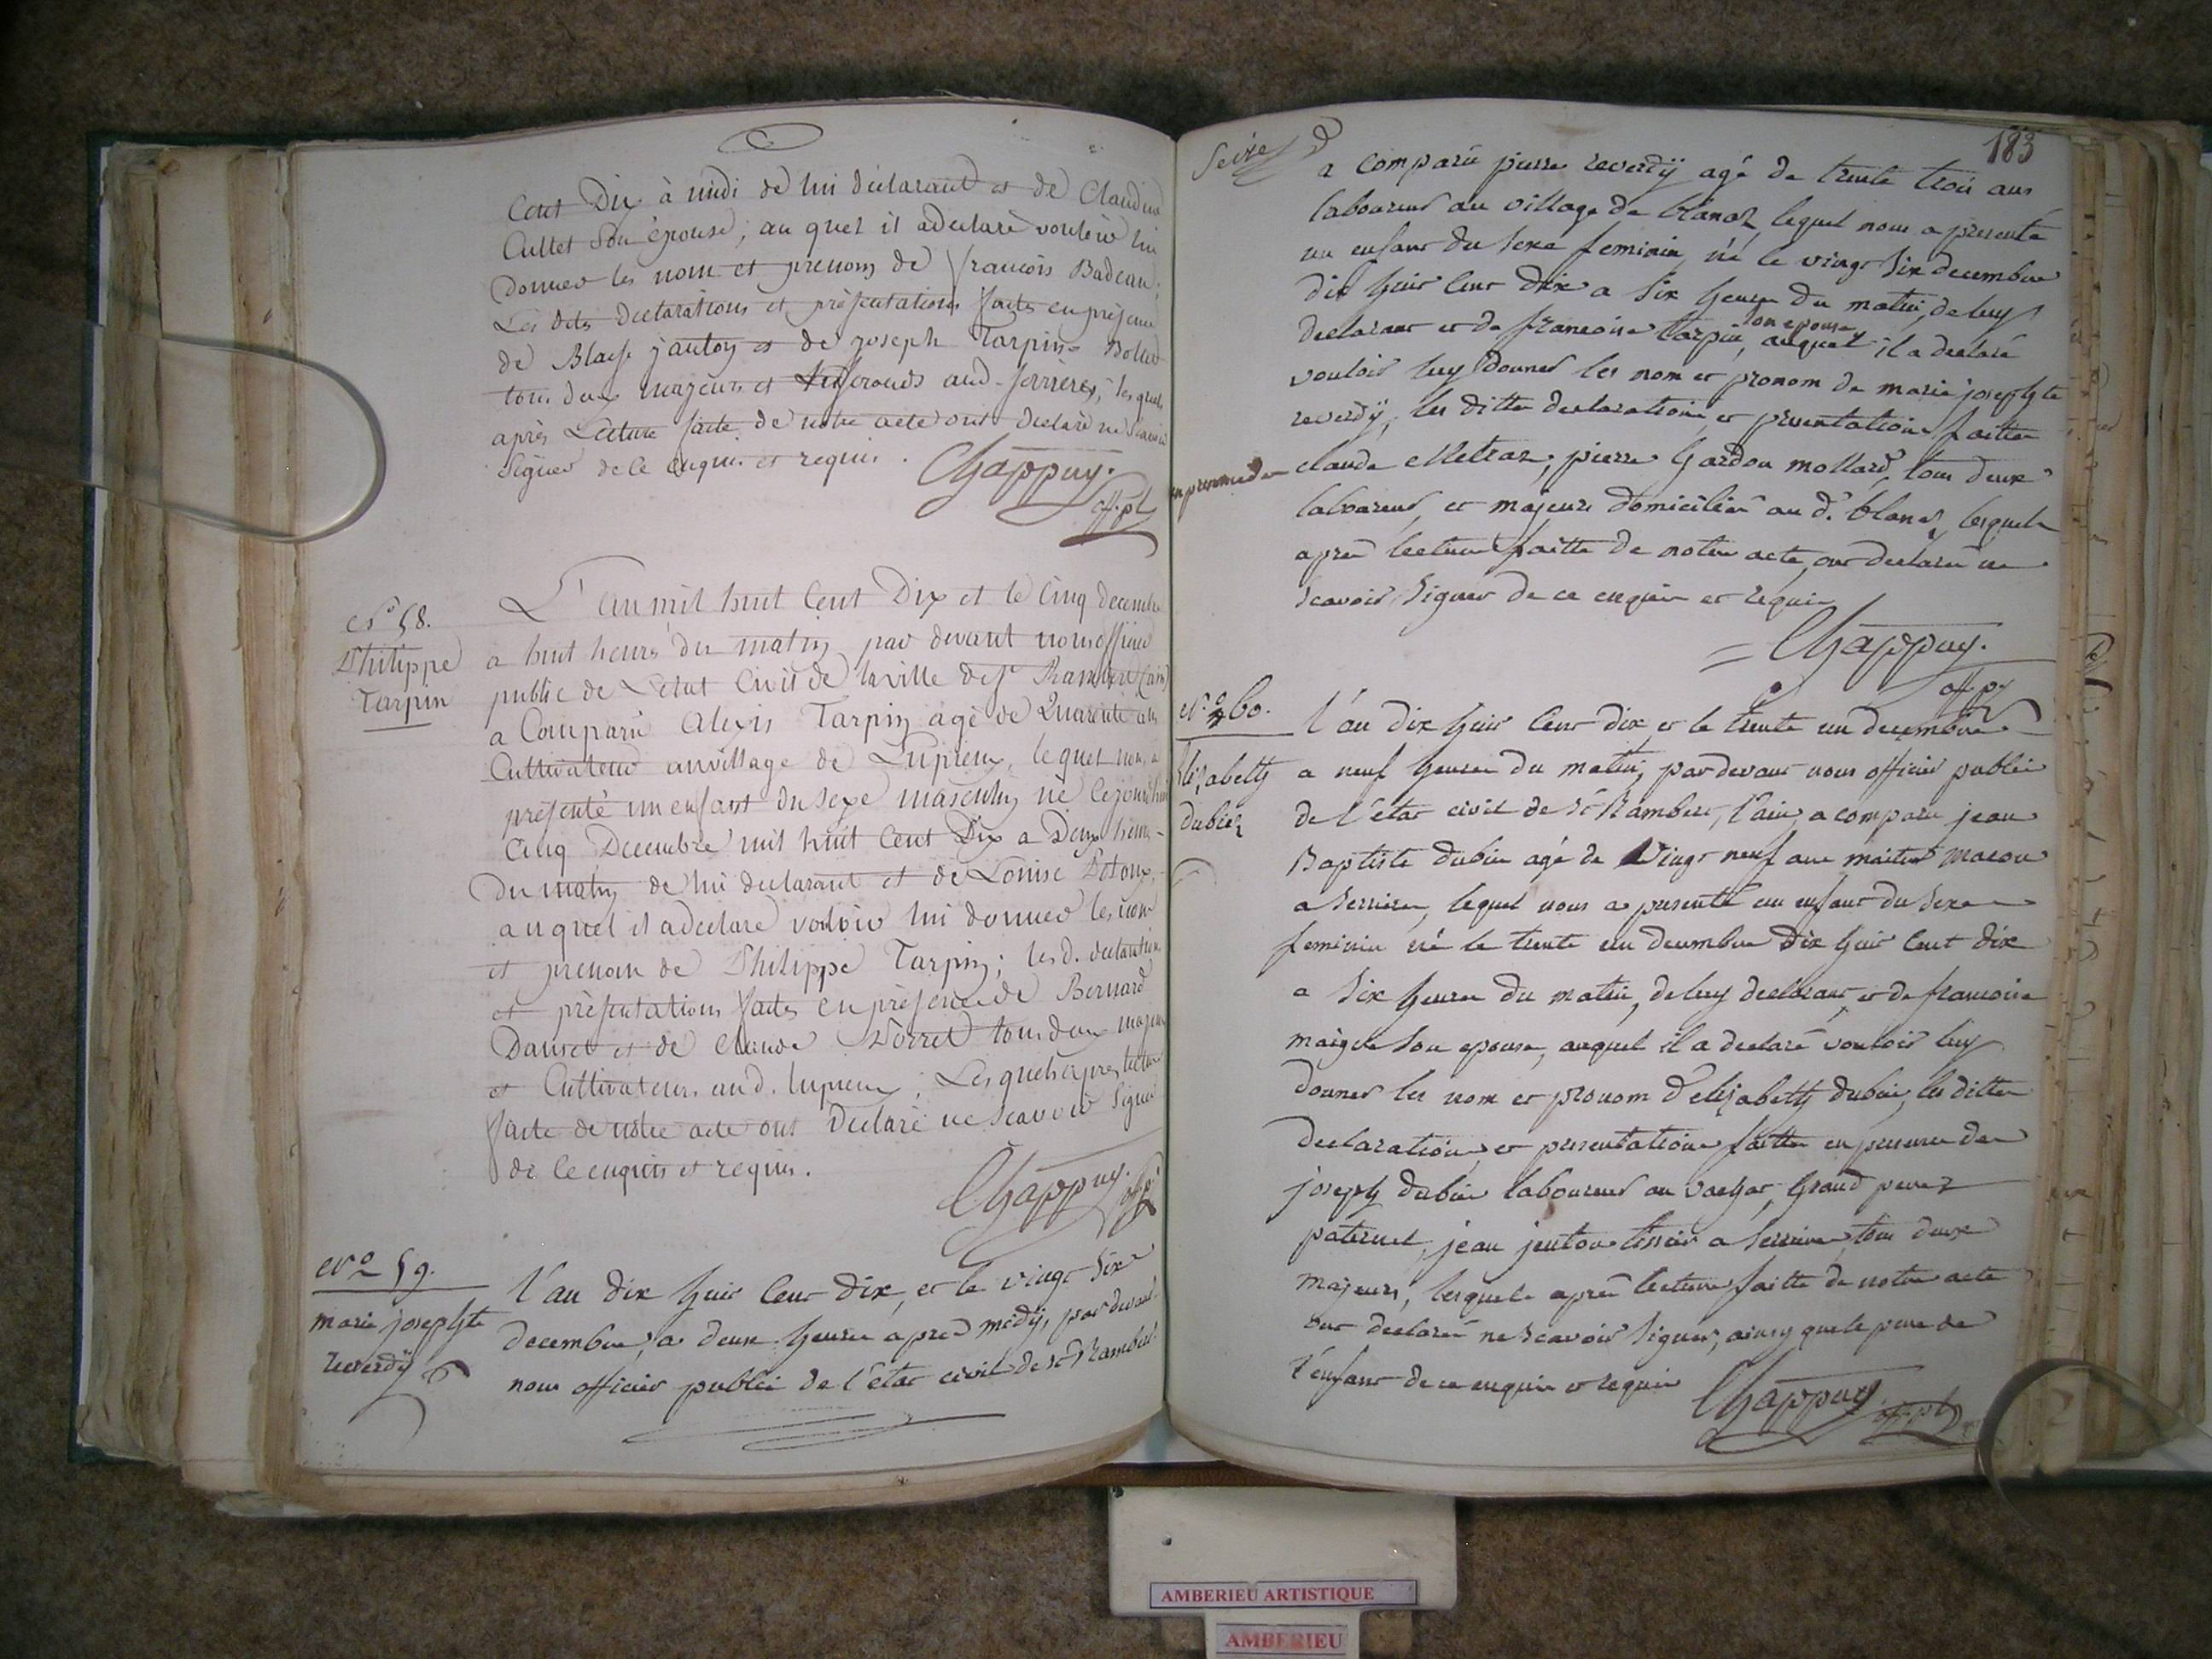 Cent Dix à midi de lui déclarant et de Claudine
Cullet Son épouse, au quel il a declaré vouloir lui
donner les nom et prenom de francois Badeau,
Les dits declarations et présentations faites en présence
de Blaise jantoy et de joseph Tarpin Bollet
tous deux majeurs et aud. serrieres, les quels
après Lecture faite de notre acte ont declaré ne Scavoir
Signer de ce enquis et requis.
Chappuy.
off. pl
N.o 58.
Philippe
Tarpin
L'an mil huit Cent Dix et le Cinq decembre
a huit heures du matin par devant nous officier
public de Letat Civil de la ville de St Rambert (ain)
a Comparu Alexis Tarpin agé de Quarante ans
Cultivateur au village de Lupieux, lequel nous a
présenté un enfant du sexe masculin né cejourdhui
Cinq Decembre mil huit Cent Dix a Deux heures
du matin de lui declarant et de Louise
auquel il a declaré vouloir lui donner les nom
et prenom de Philippe Tarpin; les d. declarations
et présentations faites en présence de Bernard
et de Claude tous deux majeurs
et Cultivateurs aud. lupieux; Les quels apres lecture
faite de notre acte ont Declaré ne Scavoir Signer
de ce enquis et requis.
Chappuy. off. p.
N.o 59.
marie josephte
reverdÿ
l'an dix huit cent dix, et le vingt six
decembre, a deux heures apres midÿ, par devant
nous officier public de l'état civil de St Rambert
Seize
183
a comparu pierre reverdÿ agé de trente trois ans
laboureur au village de blanaz, lequel nous a presenté
un enfant du sexe feminin, né le vingt six decembre
dix huit cent dix a six heures du matin, de luy
declarant et de francoise tarpin, son epouse auquel il a declaré
vouloir luy donner les nom et pronom de marie josephte
reverdÿ, les ditte declaration et presentation faitte
en presence de claude Meltraz, pierre gardon mollard, tous deux
laboureur, et majeurs domiciliés au d. blanaz, lesquels
apres lecture faitte de notre acte, ont declaré ne
scavoir signer de ce enquis et requis
Chappuy.
off. p.
N.o 60.
Elizabeth
dubiez
l'an dix huit cent dix, et le trente un decembre
a neuf heures du matin, par devant nous officier public
de l'état civil de St Rambert, l'ain, a comparu jean
Baptiste dubie agé de vingt neuf ans maitre macon
a serriere, lequel nous a presenté un enfant du sexe
feminin né le trente un decembre dix huit cent dix
a six heures du matin, de luy declarant, et de francoise
maigre son epouse, auquel il a declaré vouloir luy
donner les nom et pronom d'elizabeth dubie, les ditte
declaration, et presentation faitte en presence de
joseph dubie laboureur au vachat, grand pere
paternel, jean jenton tissier a serriere, tous deux
majeurs, lesquels apres lecture faitte de notre acte
ont declaré ne scavoir signer, ainsy que le pere de
l'enfant de ce enquis et requis
Chappuy off. pl
AMBERIEU ARTISTIQUE
AMBERIEU